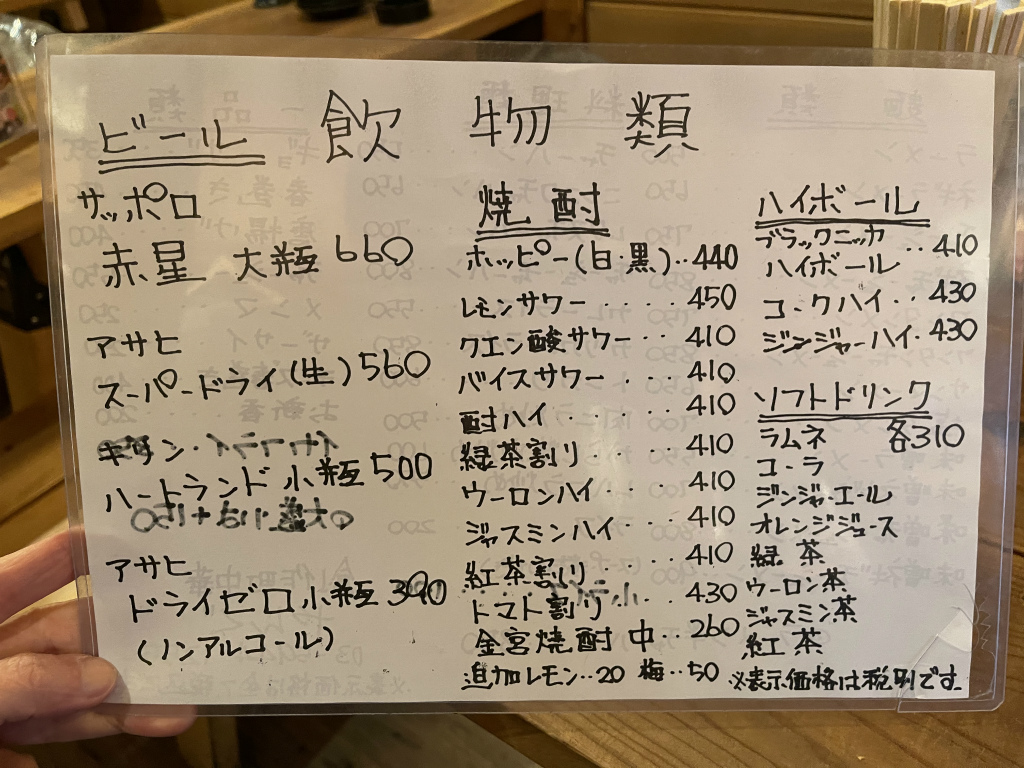 飲物類
ビール
サッポロ
赤星 大瓶 660
アサヒ
スーパードライ(生)560
キリン
ハートランド 小瓶 500
アサヒ
ドライゼロ小瓶 390
(ノンアルコール)
焼酎
ホッピー(白・黒)‥440
レモンサワー ・・・・ 450
クエン酸サワー・・ 410
バイスサワー ・・・ 410
酎ハイ ・・・・ 410
緑茶割り ・・・ 410
ウーロンハイ ・・・ 410
ジャスミンハイ ・・・ 410
紅茶割り ・・・ 410
トマト割り ・・・ 430
金宮焼酎 中‥260
追加レモン‥20 梅‥50
ハイボール
ブラックニッカ
ハイボール ‥410
コークハイ‥430
ジンジャーハイ・430
ソフトドリンク
ラムネ 各310
コーラ
ジンジャーエール
オレンジジュース
緑茶
ウーロン茶
ジャスミン茶
紅茶
※表示価格は税別です.